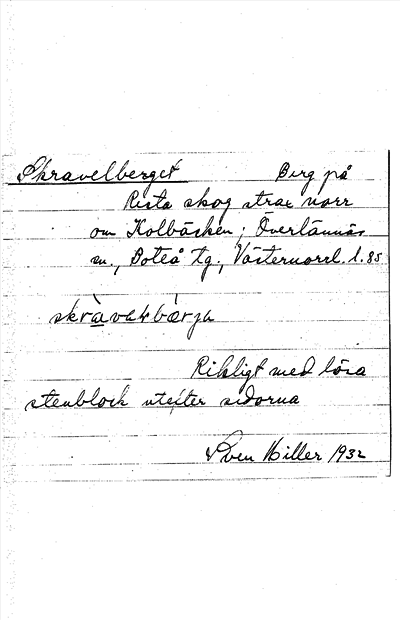 Skravelberget Berg på
Rista skog strax norr
om Kolbäcken; Överlännäs
sn., Boteå tg., Västernorrl. l. 85
skràvelbærja
Rikligt med lösa
stenblock utefter sidorna
Sven Hiller 1932